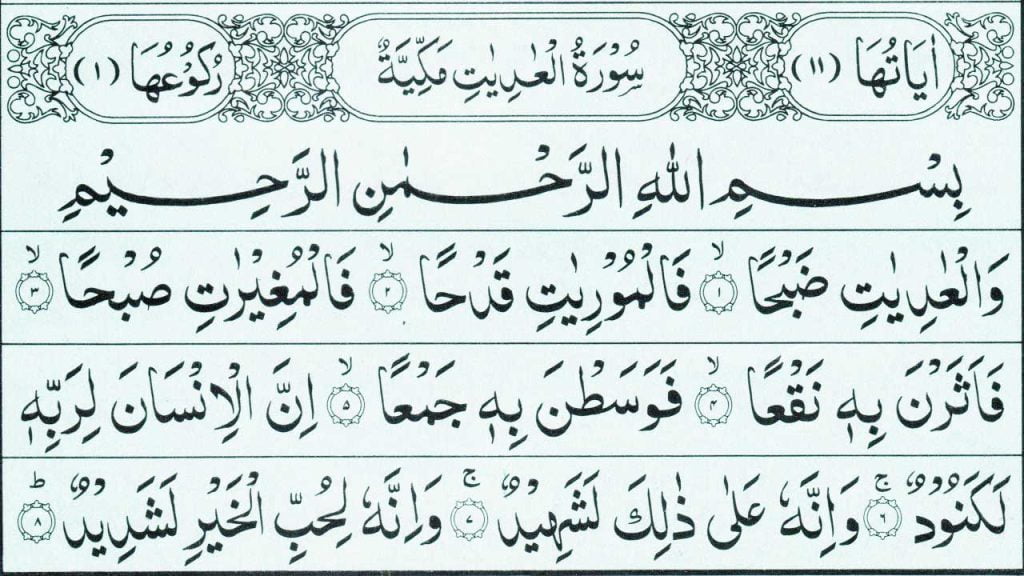 اٰيَاتُهَا (١١) سُوْرَةُ الْعٰدِيٰتِ مَكِّيَّةٌ رُكُوْعُهَا (١)
بِسْمِ اللّٰهِ الرَّحْمٰنِ الرَّحِيْمِ
وَالْعٰدِيٰتِ ضَبْحًا ۙ ١ فَالْمُوْرِيٰتِ قَدْحًا ۙ ٢ فَالْمُغِيْرٰتِ صُبْحًا ۙ ٣
فَاَثَرْنَ بِهٖ نَقْعًا ۙ ۴ فَوَسَطْنَ بِهٖ جَمْعًا ۙ ۵ اِنَّ الْاِنْسَانَ لِرَبِّهٖ
لَكَنُوْدٌ ۚ ۶ وَاِنَّهٗ عَلٰى ذٰلِكَ لَشَهِيْدٌ ۚ ٧ وَاِنَّهٗ لِحُبِّ الْخَيْرِ لَشَدِيْدٌ ؕ ٨